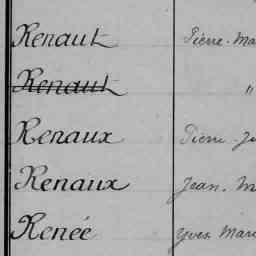 Renaut Pierre-Ma
Renaut "
Renaux Pierre-J
Renaux Jean. M
Renée Yves Mari